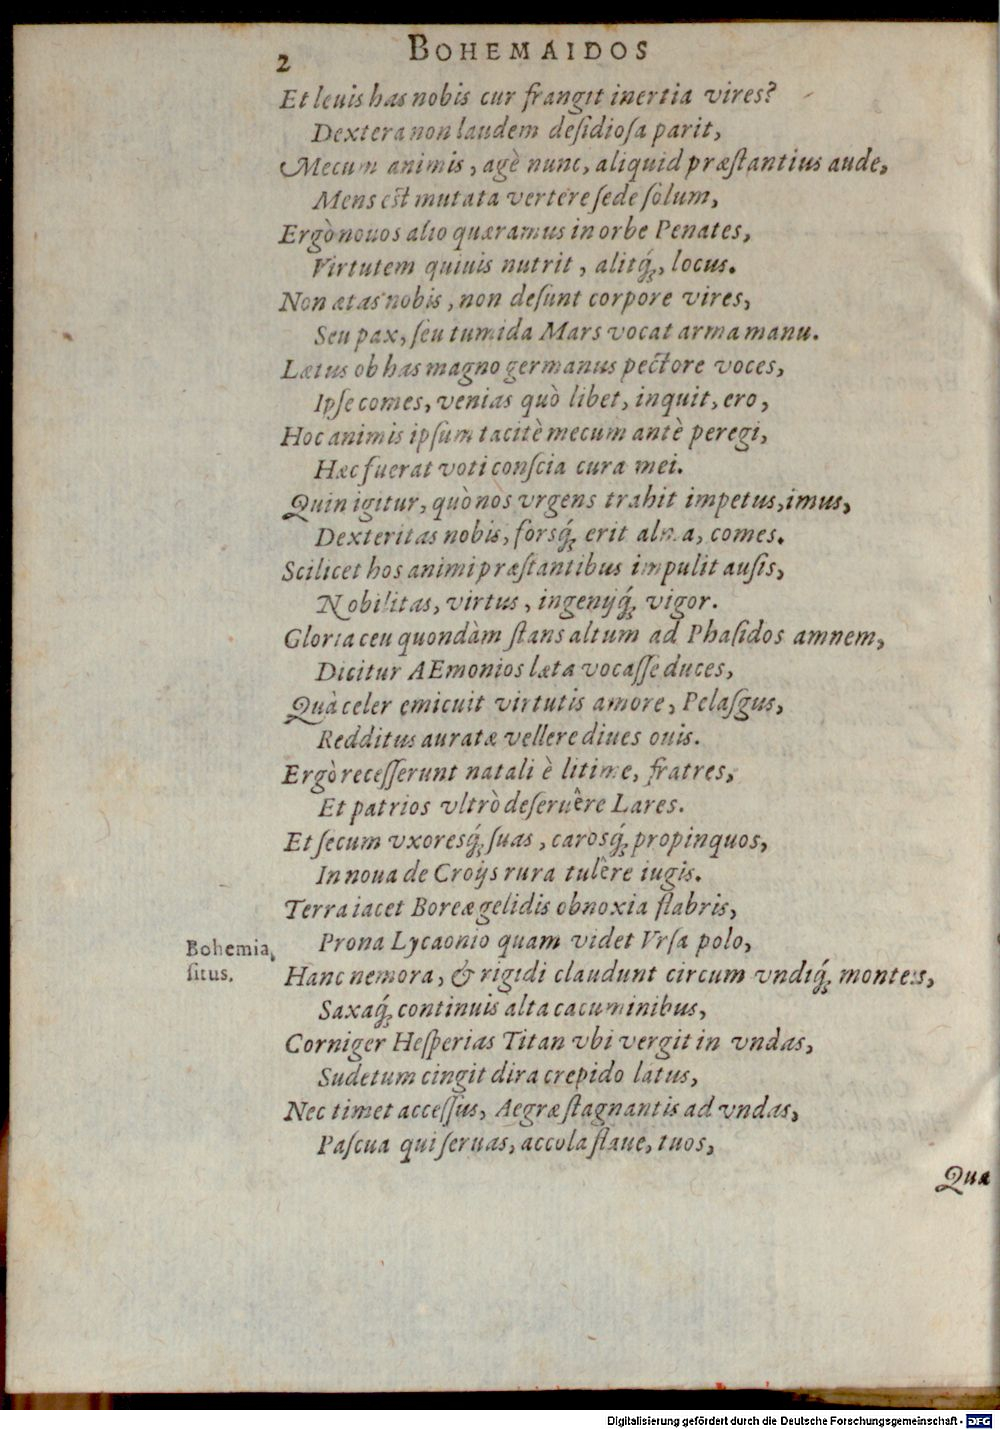 2 BOHEMAIDOS
Et leuis has nobis cur frangit inertia vires?
Dextera non laudem desidiosa parit,
Mecum animis, agè nunc, aliquid præstantius aude,
Mens est mutata vertere sede solum,
Ergò nouos alio quæramus in orbe Penates,
Virtutem quiuis nutrit, alitq́;, locus.
Non ætas nobis, non desunt corpore vires,
Seu pax, seu tumida Mars vocat arma manu.
Lætus ob has magno germanus pectore voces,
Ipse comes, venias quò libet, inquit, ero,
Hoc animis ipsum tacitè mecum antè peregi,
Hæc fuerat voti conscia cura mei.
Quin igitur, quò nos vrgens trahit impetus, imus,
Dexteritas nobis, forsq́; erit alma, comes.
Scilicet hos animi præstantibus impulit ausis,
Nobilitas, virtus, ingenijq́; vigor.
Gloria ceu quondàm stans altum ad Phasidos amnem,
Dicitur AEmonios læta vocasse duces,
Quà celer emicuit virtutis amore, Pelasgus,
Redditus auratæ vellere diues ouis.
Ergò recesserunt natali è litime, fratres,
Et patrios vltrò deseruêre Lares.
Et secum vxoresq́; suas, carosq́; propinquos,
In noua de Croijs rura tulêre iugis.
Terra iacet Boreæ gelidis obnoxia flabris,
Prona Lycaonio quam videt Vrsa polo,
Bohemia
situs.
Hanc nemora, & rigidi claudunt circum vndiq́; montes,
Saxaq́; continuis alta cacuminibus,
Corniger Hesperias Titan vbi vergit in vndas,
Sudetum cingit dira crepido latus,
Nec timet accessus, Aegræ stagnantis ad vndas,
Pascua qui seruas, accola flaue, tuos,
Qua
Digitalisierung gefördert durch die Deutsche Forschungsgemeinschaft - DFG